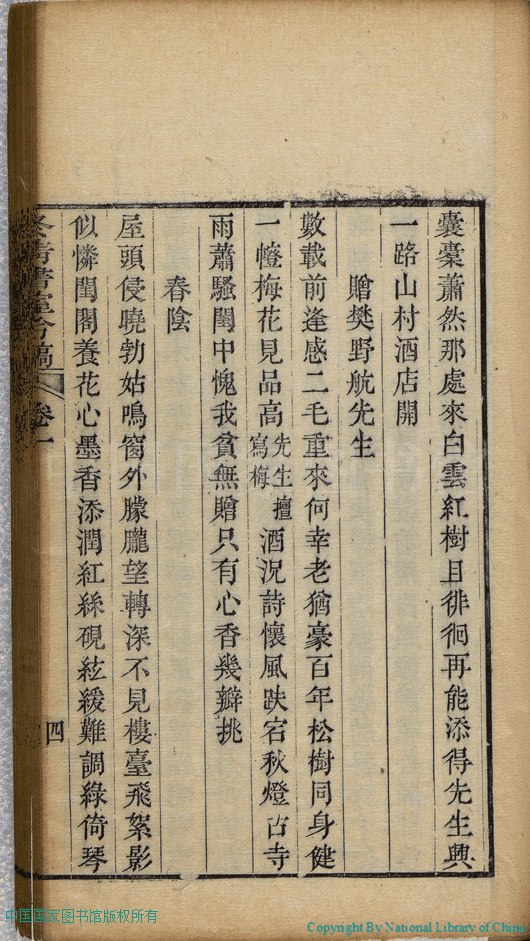 囊橐蕭然那處來白雲紅樹且徘徊再能添得先生興
一路山村酒店開
贈樊野航先生
數載前逢感二毛重來何幸老猶豪百年松樹同身健
一幢梅花見品高先生擅寫梅酒況詩懷風趺宕秋燈古寺
雨蕭騷閨中愧我貧無贈只有心香幾瓣挑
春陰
屋頭侵曉勃姑鳴窗外朦朧望轉深不見樓臺飛絮影
似憐閨閣養花心墨香添潤紅絲硯絃緩難調綠倚琴
卷一
四
中国国家图书馆版权所有
Copyright By National Library of China